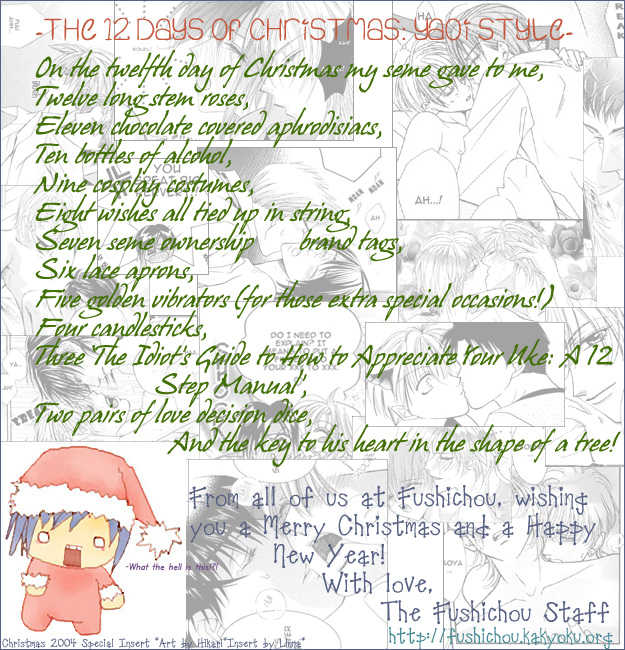 -The 12 Days of Christmas: Yaoi Style-
On the twelfth day of Christmas my seme gave to me,
Twelve long stem roses,
Eleven chocolate covered aphrodisiacs,
Ten bottles of alcohol,
Nine cosplay costumes,
Eight wishes all tied up in string,
Seven seme ownership brand tags,
Six lace aprons,
Five golden vibrators (for those extra special occasions!)
Four candlesticks,
Three 'The Idiot's Guide to How to Appreciate Your Uke: A 12
Step Manual',
Two pairs of love decision dice,
And the key to his heart in the shape of a tree!
HA
AH...!
YOU
GREAT BIG
AH
DO I NEED TO
EXPLAIN? IT
YOUR XX TO
XXX
YA...
KOYA
From all of us at Fushichou, wishing
you a Merry Christmas and a Happy
New Year!
With love,
The Fushichou Staff
http://fushichou.kakyoku.org
-What the hell is this?!
Christmas 2004 Special Insert *Art by Hikari*Insert by Liina*